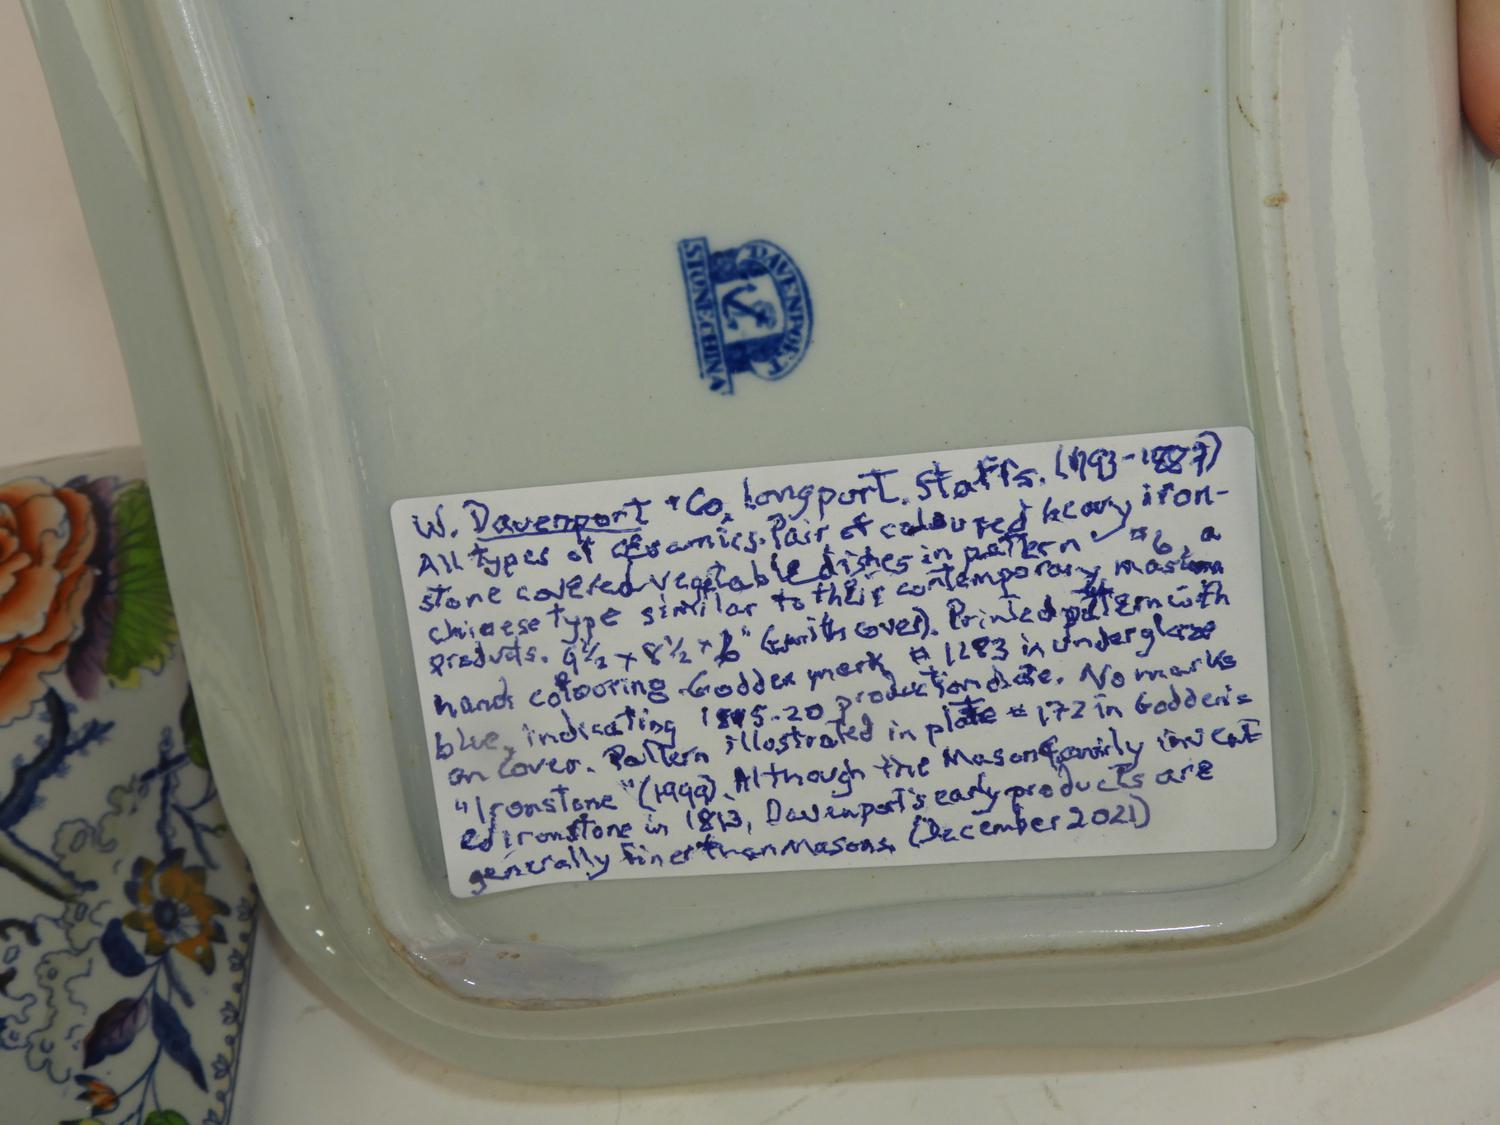 DAVENPORT
STONE CHINA
W. Davenport + Co, Longport, Staffs. (1793-1887)
All types of ceramics. Pair of coloured heavy iron-
stone covered vegetable dishes in pattern #6, a
chinese type similar to their contemporary masons
products. 9½ x 8½ x 6" (with cover). Printed pattern with
hand colouring. Godden mark # 1183 in underglaze
blue, indicating 1805-20 production date. No marks
on cover. Pattern illustrated in plate # 172 in Godden's
"Ironstone" (1999). Although the Mason family invent-
ed ironstone in 1813, Davenport's early products are
generally finer than Masons. (December 2021)